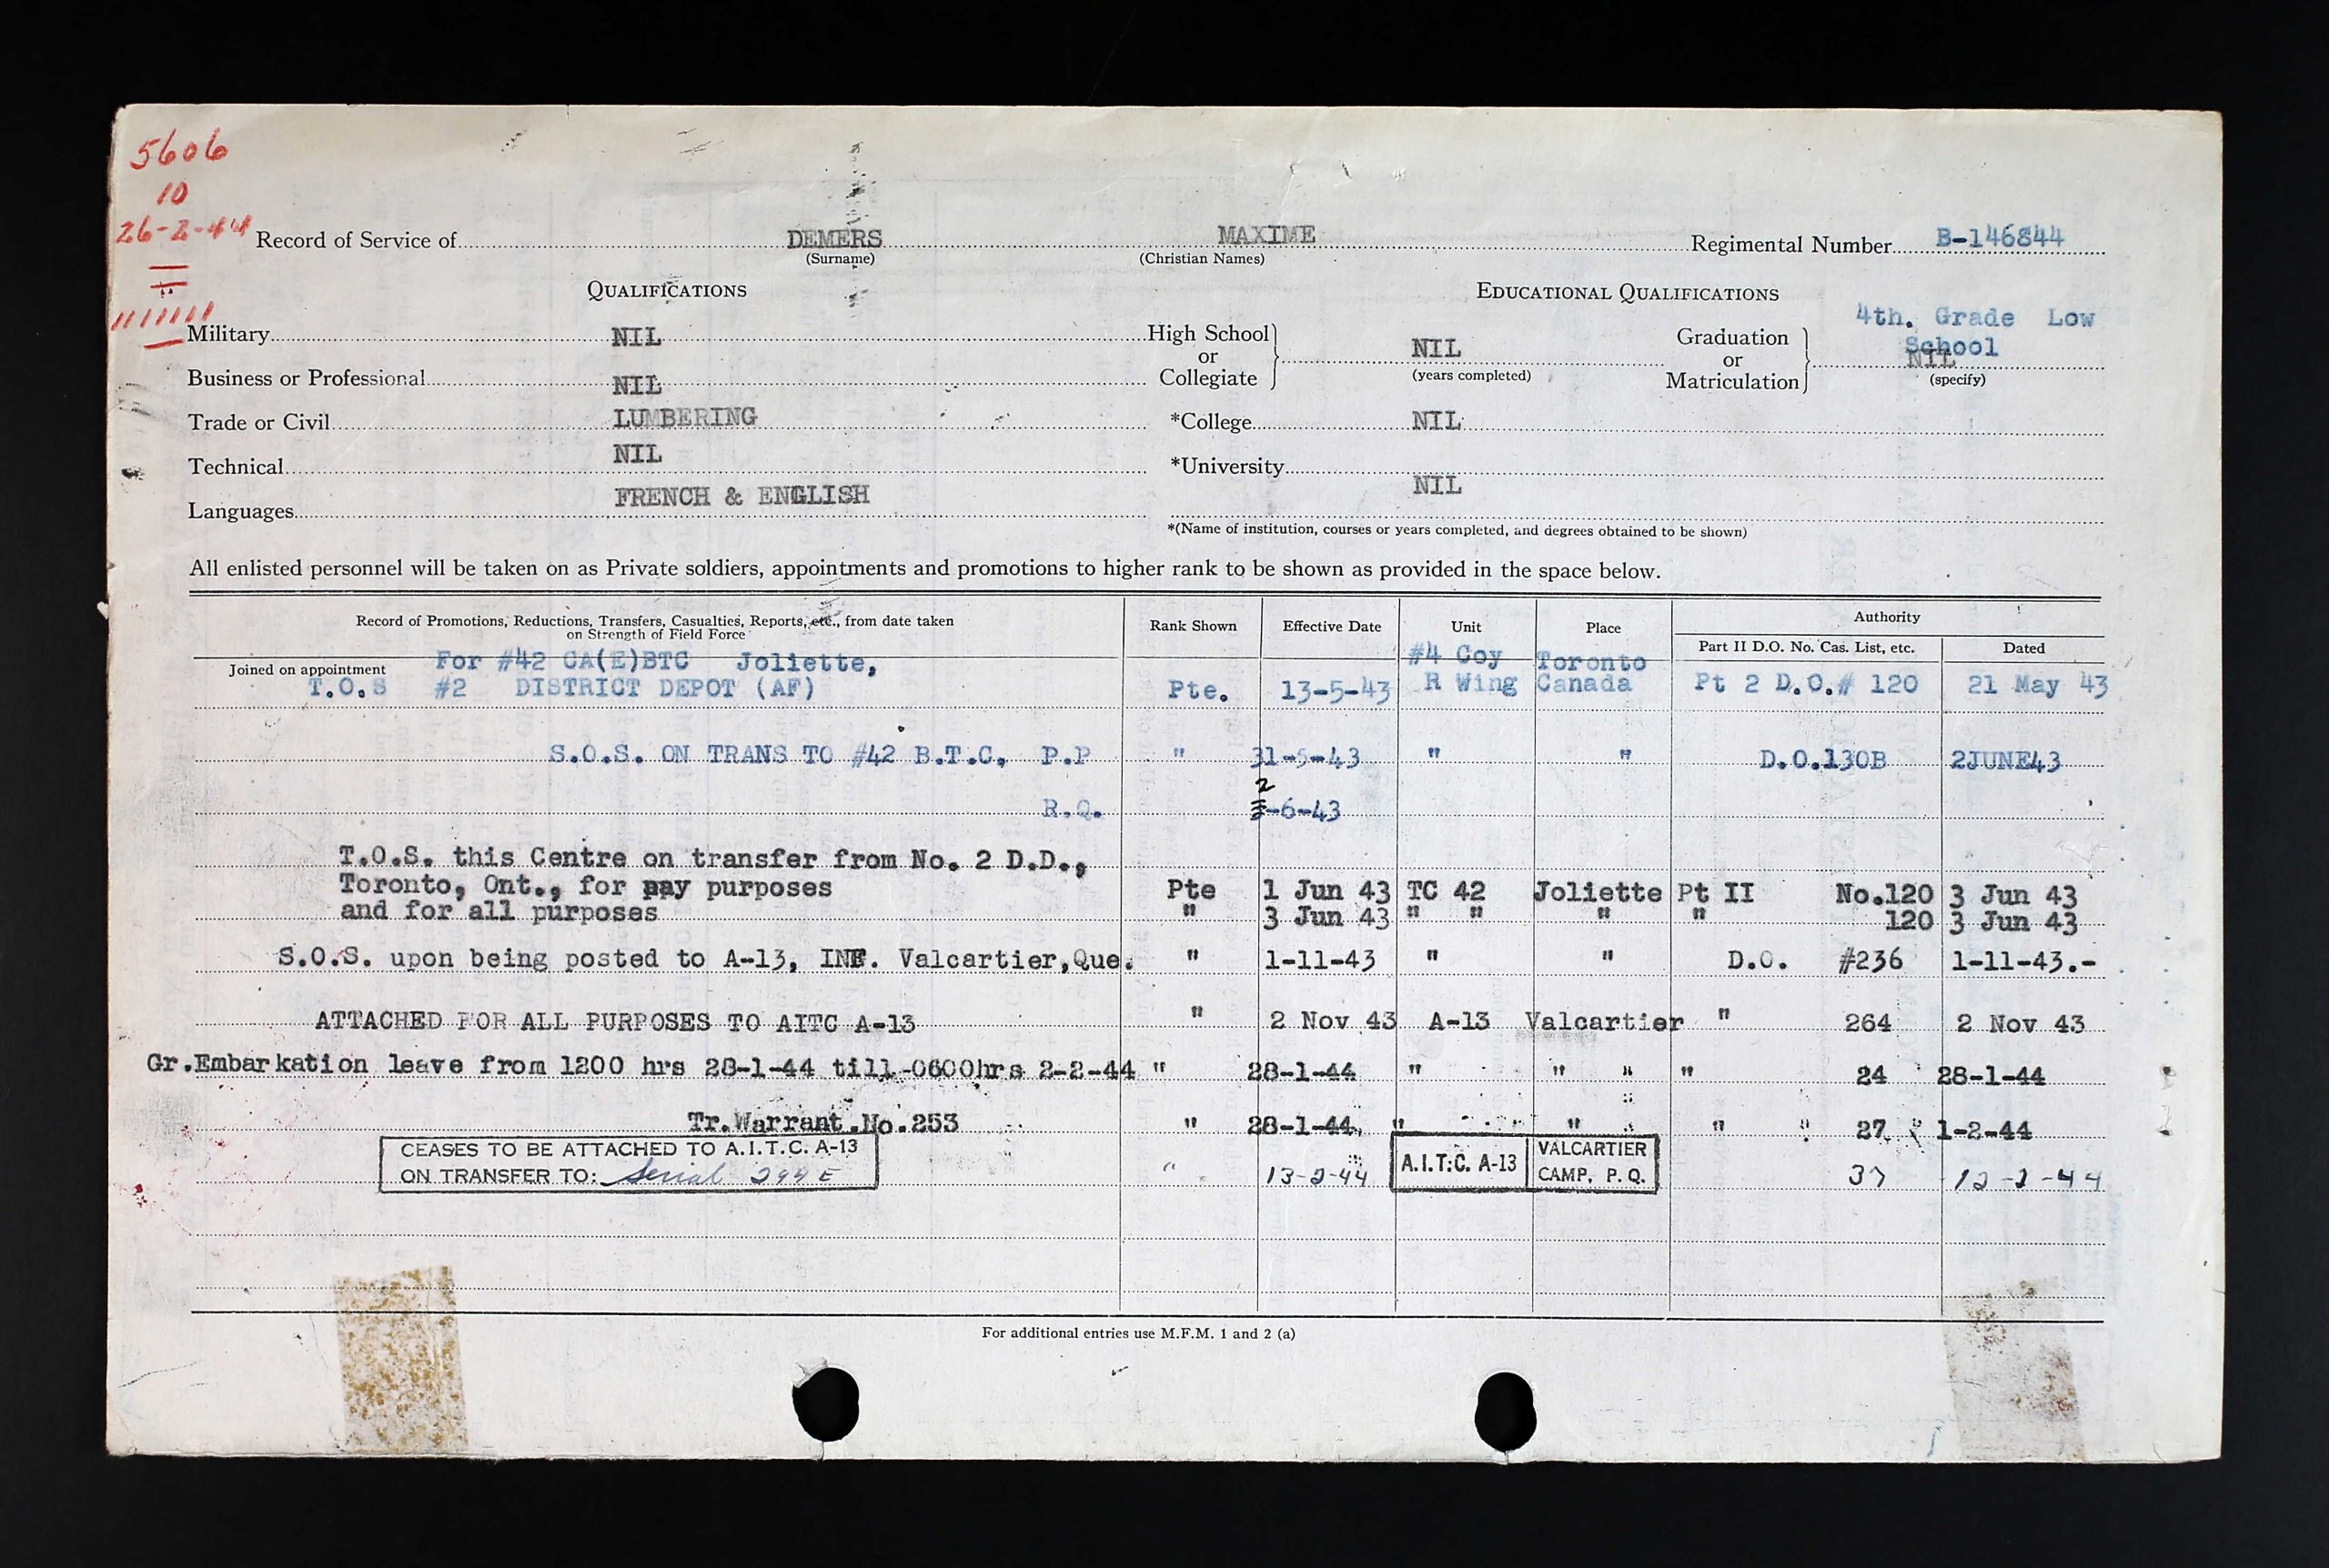 5606
10
26-2-44
Record of Service of DEMERS MAXIME Regimental Number B-146844
(Surname) (Christian Names)
QUALIFICATIONS EDUCATIONAL QUALIFICATIONS
4th. Grade Low
School
Military NIL High School or Collegiate NIL Graduation or Matriculation NIL
(years completed) (specify)
Business or Professional NIL
Trade or Civil LUMBERING *College NIL
Technical NIL *University
NIL
Languages FRENCH & ENGLISH
*(Name of institution, courses or years completed, and degrees obtained to be shown)
All enlisted personnel will be taken on as Private soldiers, appointments and promotions to higher rank to be shown as provided in the space below.
Record of Promotions, Reductions, Transfers, Casualties, Reports, etc., from date taken
on Strength of Field Force
Rank Shown Effective Date Unit Place Authority
Part II D.O. No. Cas. List, etc. Dated
Joined on appointment For #42 CA(E)BTC Joliette, #4 Coy Toronto
T.O.S #2 DISTRICT DEPOT (AF) Pte. 13-5-43 R Wing Canada Pt 2 D.O.# 120 21 May 43
S.O.S. ON TRANS TO #42 B.T.C. P.P " 31-5-43 " " D.O.130B 2JUNE43
2
R.Q. -6-43
T.O.S. this Centre on transfer from No. 2 D.D.,
Toronto, Ont., for pay purposes Pte 1 Jun 43 TC 42 Joliette Pt II No.120 3 Jun 43
and for all purposes " 3 Jun 43 " " " " 120 3 Jun 43
S.O.S. upon being posted to A-13, INF. Valcartier,Que. " 1-11-43 " " D.O. #236 1-11-43.-
ATTACHED FOR ALL PURPOSES TO AITC A-13 " 2 Nov 43 A-13 Valcartier " 264 2 Nov 43
Gr.Embarkation leave from 1200 hrs 28-1-44 till 0600hrs 2-2-44 " 28-1-44 " " " " 24 28-1-44
Tr.Warrant.No.253 " 28-1-44 " " " " 27 1-2-44
CEASES TO BE ATTACHED TO A.I.T.C. A-13
ON TRANSFER TO: Serial 299 E " 13-2-44 A.I.T.C. A-13 VALCARTIER
CAMP, P.Q. 37 12-2-44
For additional entries use M.F.M. 1 and 2 (a)